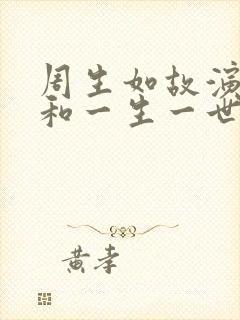 周生如故演
和一生一世
黄李